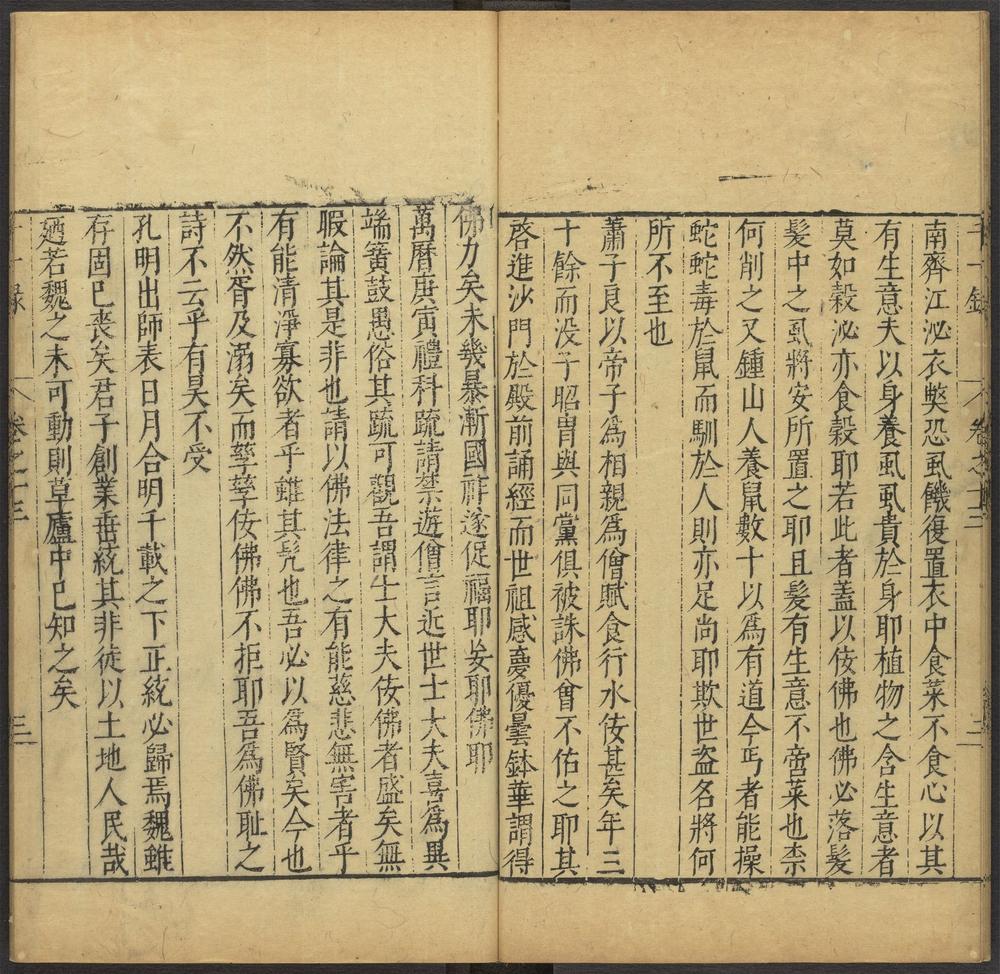 卷之十三
二
南齊江泌衣獘恐虱饑復置衣中食菜不食心以其
有生意夫以身養虱虱貴於身耶植物之含生意者
莫如穀泌亦食穀耶若此者蓋以佞佛也佛必落髮
髮中之虱將安所置之耶且髮有生意不啻菜也柰
何削之又鍾山人養鼠數十以爲有道今丐者能操
蛇蛇毒於鼠而馴於人則亦足尚耶欺世盜名將何
所不至也
蕭子良以帝子爲相親爲僧賦食行水佞甚矣年三
十餘而没子昭胄與同黨俱被誅佛會不佑之耶其
啓進沙門於殿前誦經而世祖感夢優曇鉢華謂得
佛力矣未幾暴漸國祚遂促福耶妄耶佛耶
萬曆庚寅禮科疏請禁遊僧言近世士大夫喜爲異
端簧鼓愚俗其疏可觀吾謂士大夫佞佛者盛矣無
暇論其是非也請以佛法律之有能慈悲無害者乎
有能清淨寡欲者乎雖其髠也吾必以爲賢矣今也
不然胥及溺矣而孳孳佞佛佛不拒耶吾爲佛耻之
詩不云乎有昊不受
孔明出師表日月合明千載之下正統必歸焉魏雖
存固已喪矣君子創業垂統其非徒以土地人民哉
廼若魏之未可動則草廬中已知之矣
卷之十三
三